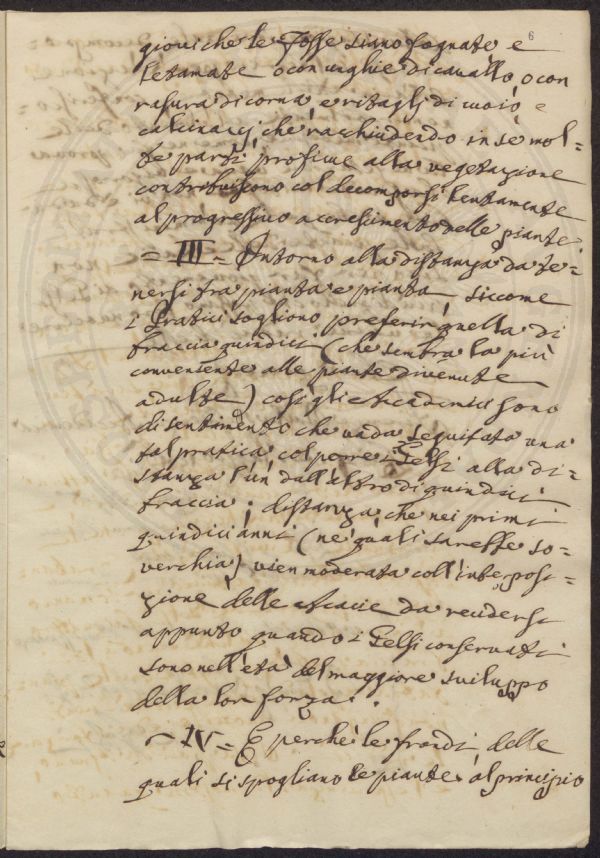 6
giovi che le Fosse siano fognate e
letamate o con unghie di cavallo, o con
rasura di corna e ritaglj di cuoio e
calcinaccj che racchiudendo in se mol=
te parti proficue alla vegetazione
contribuiscono col decomporsi lentamente
al progressivo accrescimento delle piante.
= III = Intorno alla distanza da te=
nersi fra pianta e pianta, siccome
i Pratici sogliono preferir quella di
braccia quindici (che sembra la più
conveniente alle piante divenute
adulte) così gli Accademici sono
di sentimento che vada seguitata una
tal pratica col porre i Gelsi alla di=
stanza l'un dall'altro di quindici
braccia; distanza che nei primi
quindici anni (ne' quali sarebbe so=
verchia) vien moderata coll'interposi=
zione delle Acacie da recidersi
appunto quando i Gelsi conservati
sono nell'età del maggiore sviluppo
della lor forza.
= IV = E perchè le frondi delle
quali si spogliano le piante al principio